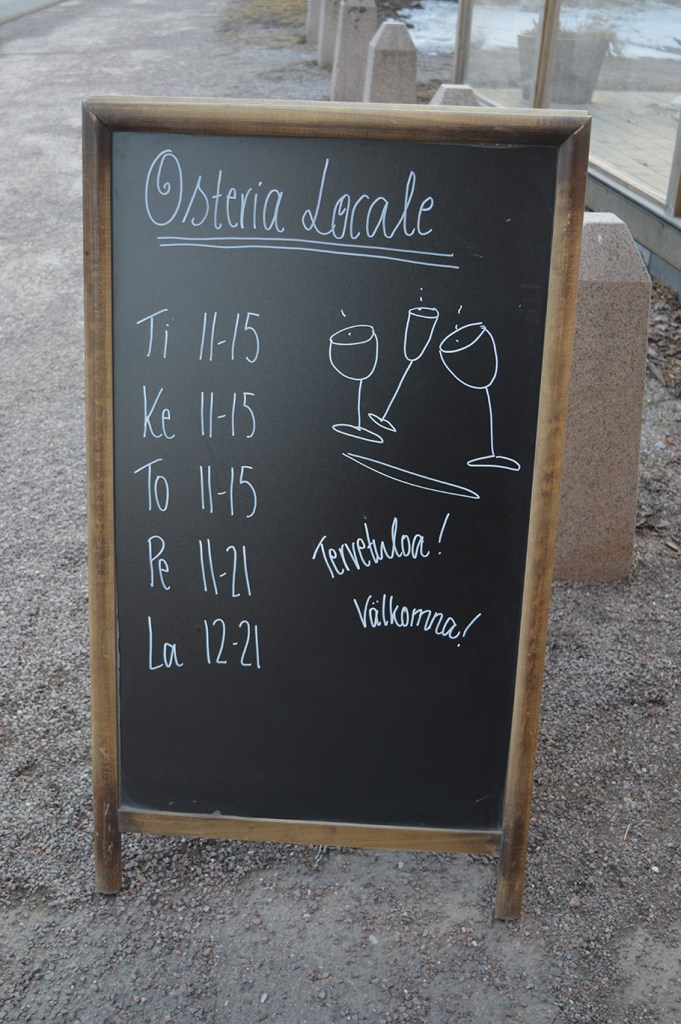 Osteria Locale
Ti 11-15
Ke 11-15
To 11-15
Pe 11-21
La 12-21
Tervetuloa!
Välkomna!